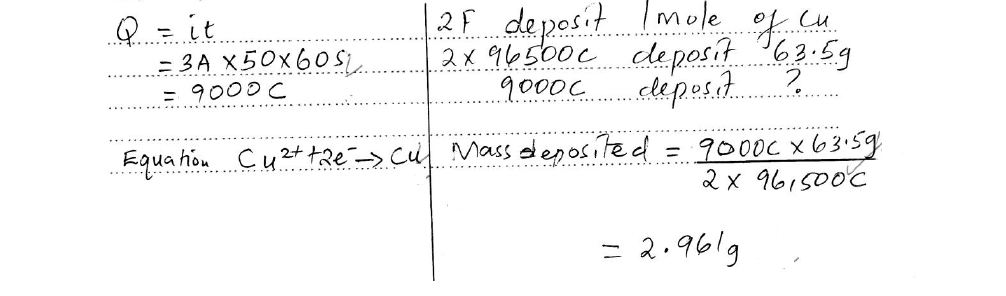 Q = it
= 3A X50X60S
= 9000C
Equation Cu²⁺+2e⁻→Cu
2F deposit 1mole of Cu
2x 96500C deposit 63.5g
9000C deposit ?
Mass deposited = 9000C X63.5g
2 x 96,500C
= 2.961g